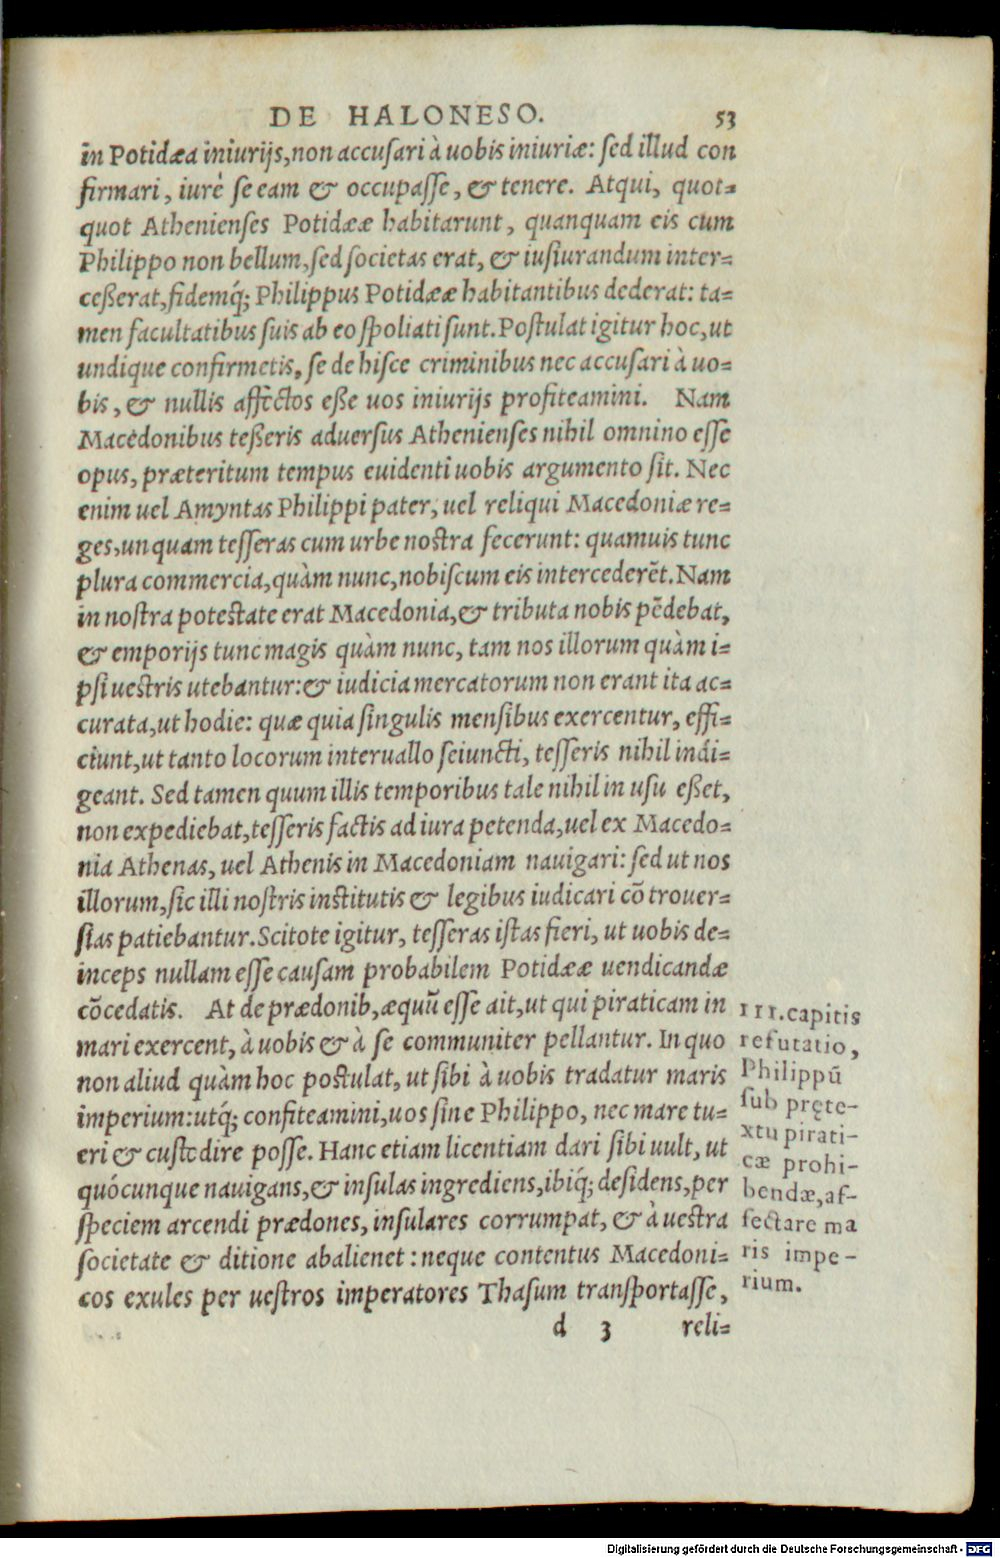 DE HALONESO. 53
in Potidæa iniurijs, non accusari à uobis iniuriæ: sed illud con
firmari, iure se eam & occupasse, & tenere. Atqui, quot=
quot Athenienses Potidææ habitarunt, quanquam eis cum
Philippo non bellum, sed societas erat, & iusiurandum inter=
ceßerat, fidemq́; Philippus Potidææ habitantibus dederat: ta=
men facultatibus suis ab eo spoliati sunt. Postulat igitur hoc, ut
undique confirmetis, se de hisce criminibus nec accusari à uo=
bis, & nullis affectos eße uos iniurijs profiteamini. Nam
Macedonibus teßeris aduersus Athenienses nihil omnino esse
opus, præteritum tempus euidenti uobis argumento sit. Nec
enim uel Amyntas Philippi pater, uel reliqui Macedoniæ re=
ges, unquam tesseras cum urbe nostra fecerunt: quamuis tunc
plura commercia, quàm nunc, nobiscum eis intercederēt. Nam
in nostra potestate erat Macedonia, & tributa nobis pēdebat,
& emporijs tunc magis quàm nunc, tam nos illorum quàm i=
psi uestris utebantur: & iudicia mercatorum non erant ita ac=
curata, ut hodie: quæ quia singulis mensibus exercentur, effi=
ciunt, ut tanto locorum interuallo seiuncti, tesseris nihil indi=
geant. Sed tamen quum illis temporibus tale nihil in usu eßet,
non expediebat, tesseris factis ad iura petenda, uel ex Macedo=
nia Athenas, uel Athenis in Macedoniam nauigari: sed ut nos
illorum, sic illi nostris institutis & legibus iudicari cōtrouer=
sias patiebantur. Scitote igitur, tesseras istas fieri, ut uobis de=
inceps nullam esse causam probabilem Potidææ uendicandæ
cōcedatis. At de prædonib, æquū esse ait, ut qui piraticam in
mari exercent, à uobis & à se communiter pellantur. In quo
non aliud quàm hoc postulat, ut sibi à uobis tradatur maris
imperium: utq́; confiteamini, uos sine Philippo, nec mare tu=
eri & custodire posse. Hanc etiam licentiam dari sibi uult, ut
quócunque nauigans, & insulas ingrediens, ibiq́; desidens, per
speciem arcendi prædones, insulares corrumpat, & à uestra
societate & ditione abalienet: neque contentus Macedoni=
cos exules per uestros imperatores Thasum transportasse,
d 3 reli=
III. capitis
refutatio,
Philippū
sub pręte-
xtu pirati-
cæ prohi-
bendæ, af-
fectare ma
ris impe-
rium.
Digitalisierung gefördert durch die Deutsche Forschungsgemeinschaft - DFG